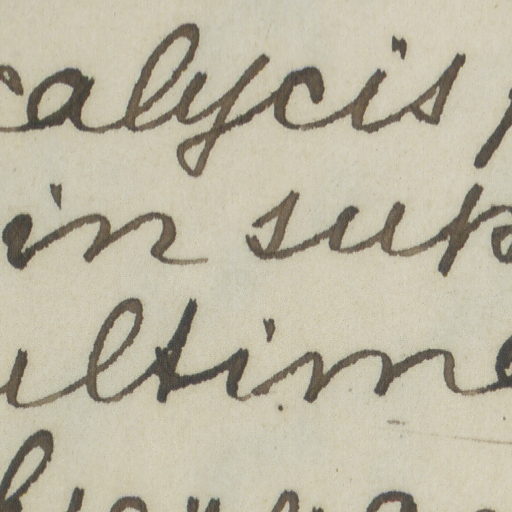 calycis
in sup
ultime